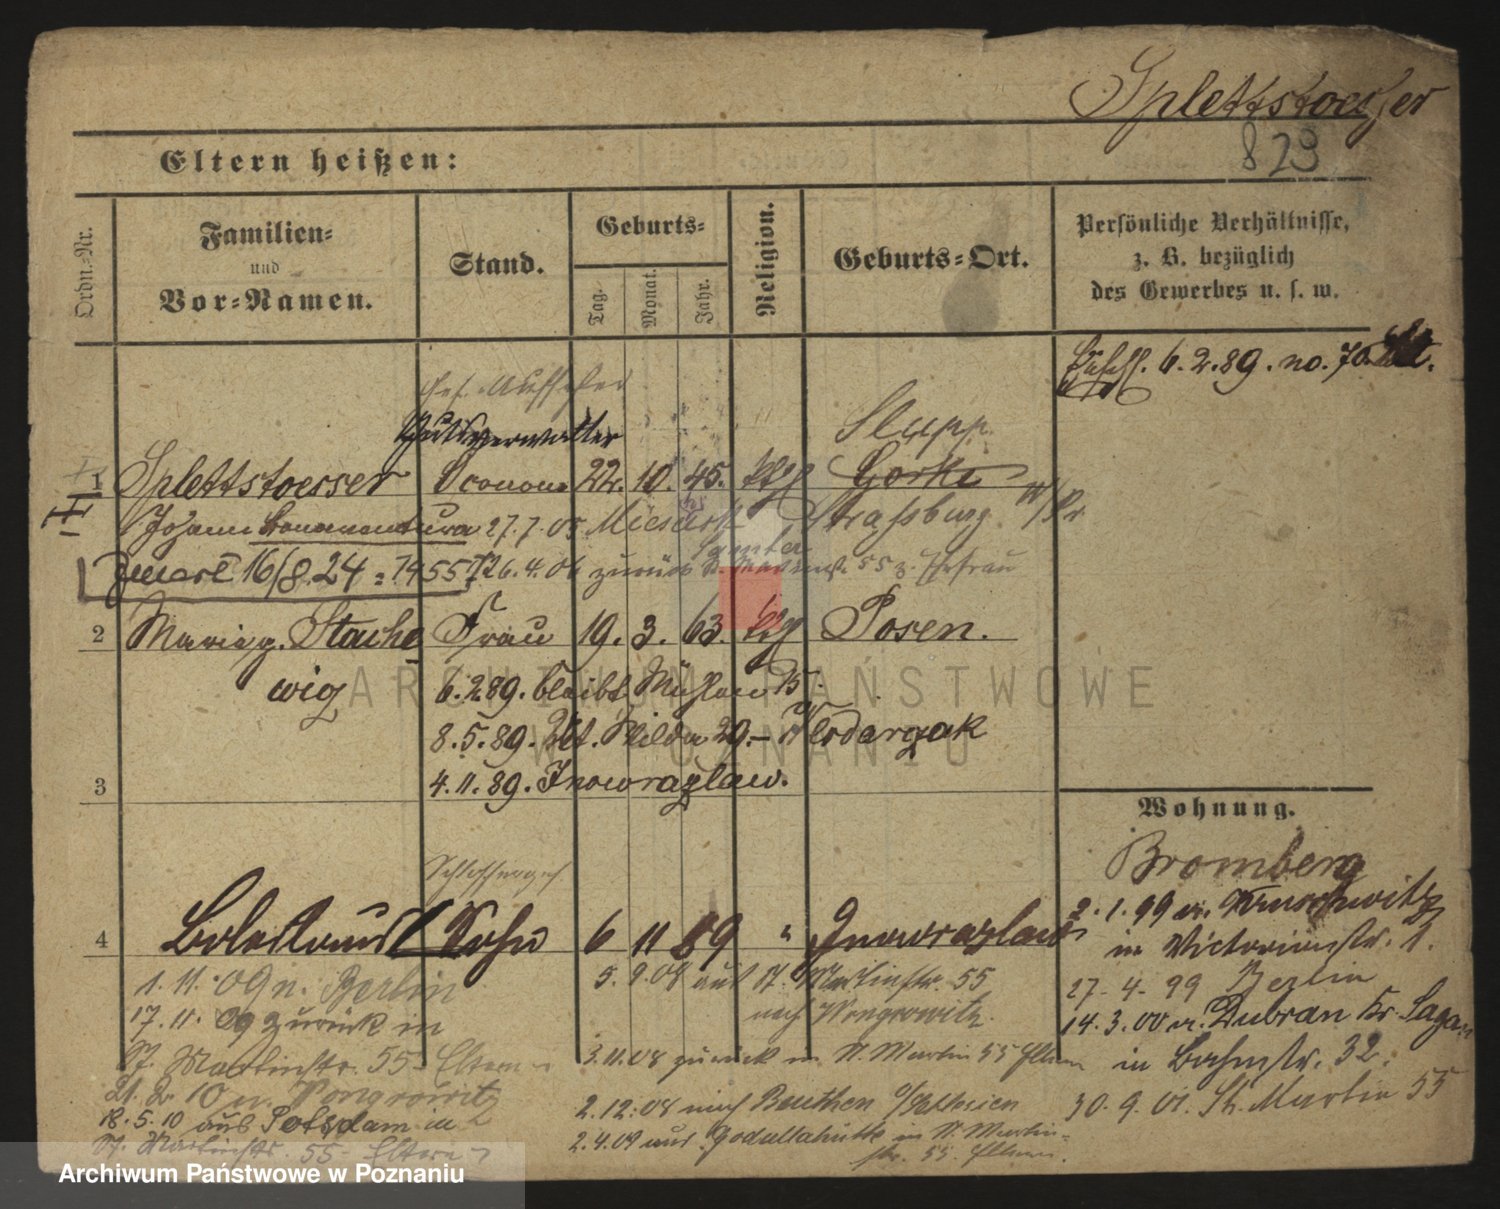 Splettstoesser
823
Eltern heißen:
Ordn.-Nr.
Familien-
und
Vor-Namen.
Stand.
Geburts-
Tag.
Monat.
Jahr.
Religion.
Geburts-Ort.
Persönliche Verhältnisse,
z. B. bezüglich
des Gewerbes u. s. w.
6.2.89. no. 70
Gutsverwalter
Slupp
1 Splettstoesser Oconom 22. 10. 45. ktl Gorke
Johann Bonaventura 27.7.05 Strassburg W/Pr
16/8.24 26.4.06 zurück 55 z. Ehefrau
2 Marie g. Stache Frau 19. 3. 63. ktl Posen.
wig
6.2.89. bleibt Mühlen 15
8.5.89. Wilda 29.- Wlodarczak
3
4.11.89. Inowrazlaw.
Wohnung.
Bromberg
Schlosserges.
2.1.99 n. Kruschwitz
4 Boleslaus Sohn 6 11 89 " Inowrazlaw
in Victoriastr. 1.
1.11.09 n. Berlin
5.9.08 aus St. Martinstr. 55
27-4-99 Berlin
17.11.09 zurück in
nach Wongrowitz
14.3.00 n. Dubran Kr. Sagan
St. Martinstr. 55 Eltern
3.11.08 zurück in St. Martin 55 Eltern
in Bahnstr. 32.
21.2.10 n. Wongrowitz
2.12.08 nach Beuthen O/Schlesien
30.9.01. St. Martin 55
18.5.10 aus Potsdam in
2.4.09 aus Godullahütte in St. Martin-
St. Martinstr. 55 Eltern
str. 55 Eltern.
ARCHIWUM PAŃSTWOWE
W POZNANIU
Archiwum Państwowe w Poznaniu